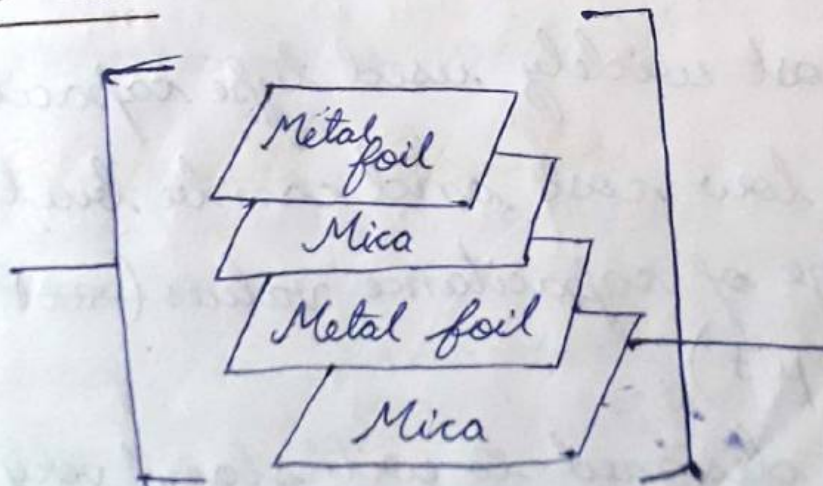 Metal
foil
Mica
Metal foil
Mica